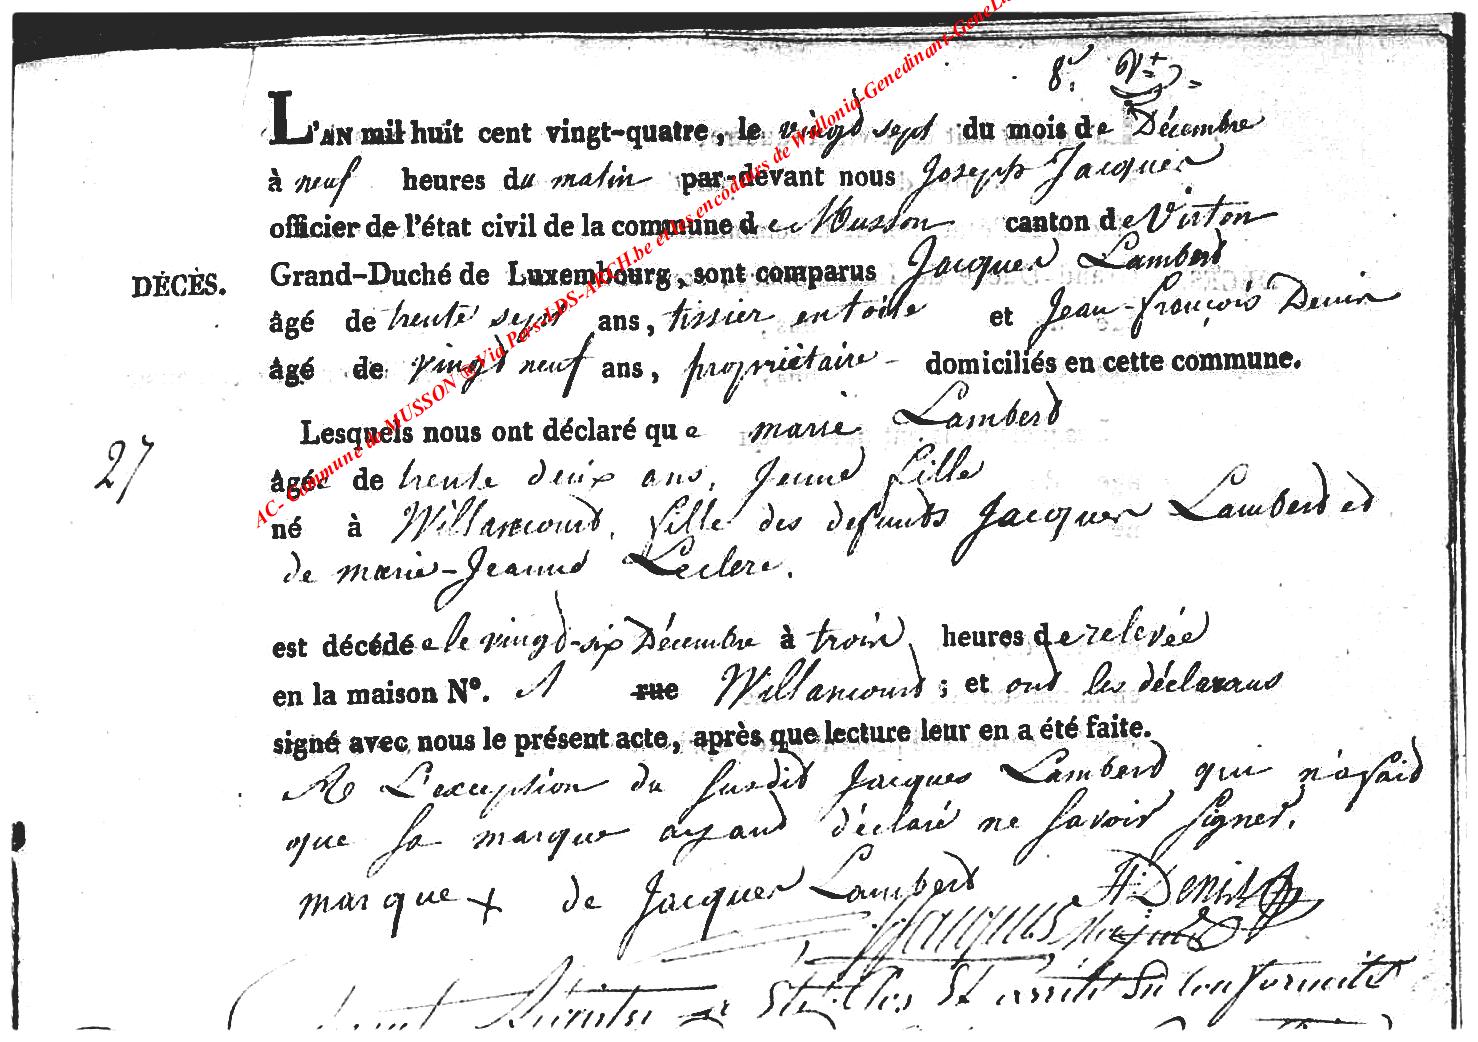 8.
L'AN mil huit cent vingt-quatre, le vingt sept du mois de Décembre
à neuf heures du matin par-devant nous Joseph Jacques
officier de l'état civil de la commune de Musson canton de Virton
DÉCÈS. Grand-Duché de Luxembourg, sont comparus Jacques Lambert
âgé de trente sept ans, tissier en toile et Jean-françois Denis
âgé de vingt neuf ans, propriètaire - domiciliés en cette commune.
Lesquels nous ont déclaré que marie Lambert
27
âgée de trente deux ans, Jeune fille
né à Willancourt, fille des defunts Jacques Lambert et
de marie-Jeanne Leclere.
est décédée le vingt-six Décembre à trois heures de relevée
en la maison N°. 1 rue Willancourt ; et ont les déclarans
signé avec nous le présent acte, après que lecture leur en a été faite.
A L'exception du susdit Jacques Lambert qui n'a fait
que sa marque ayant déclaré ne savoir signer.
marque + de Jacques Lambert Denis
Jacques
Le present Registre a Eté Clos Et arrêté En Conformité
AC- Commune de MUSSON ® Via Pers-LDS-ARCH.be et les encodeurs de Wallonia-Genedinant-GeneLux